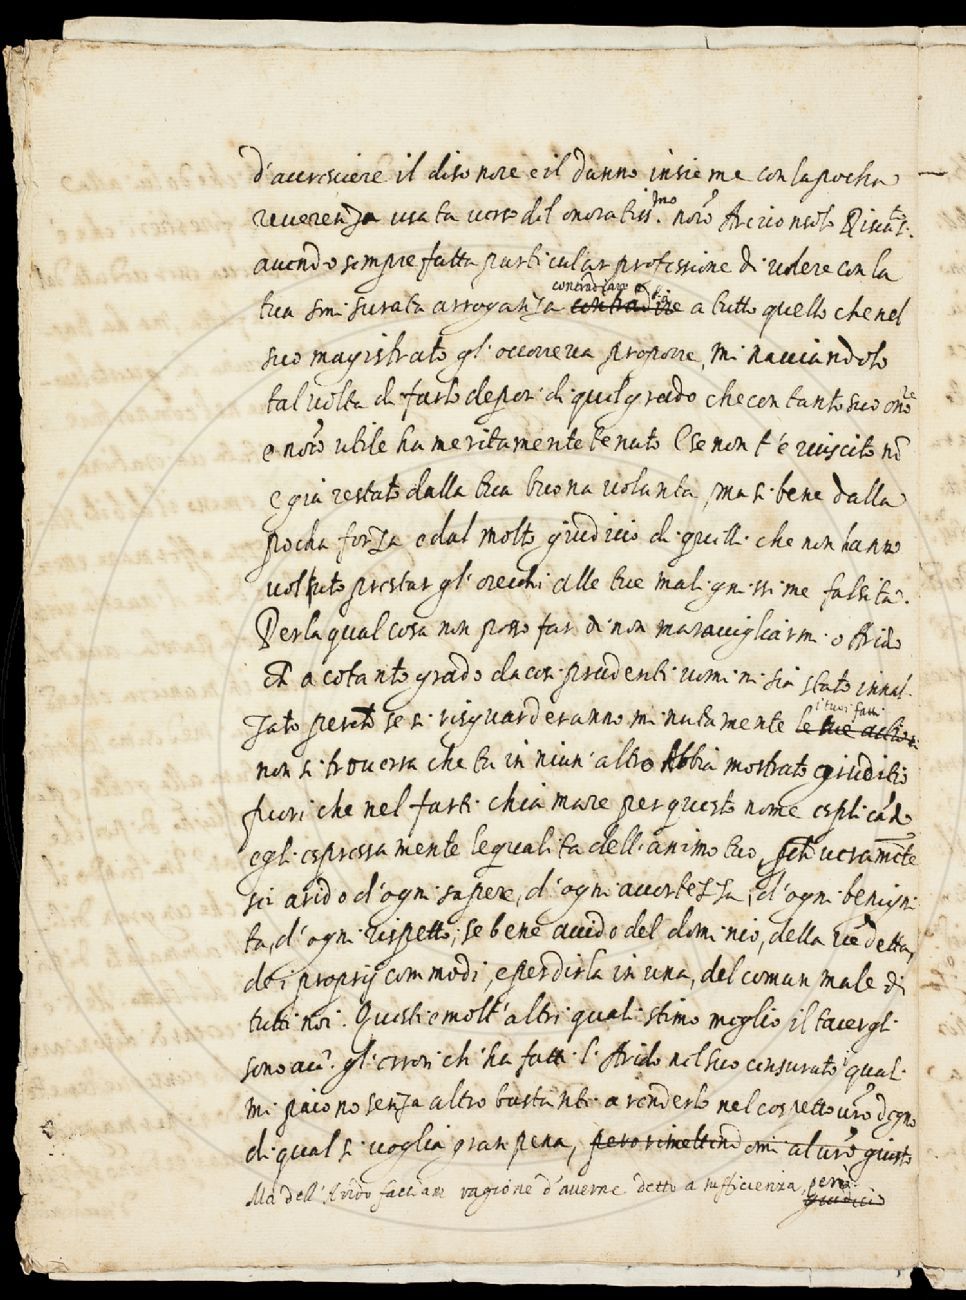 d'accresciere il disonore e il danno insieme con la pocha
reverenza usata verso dil onoratiss.mo nõro Arciconsolo
avendo sempre fatta particular professione di volere con la
tua smisurata arroganza contradiare e contradire a tutto quello che nel
suo magistrato gl'occorreva proporre, minacciandolo
talvolta di farlo depor di quel grado che con tanto suo onõe
e nõro utile ha meritamente tenuto e se non t'è riuscito nõ
e gia restato dalla tua buona volunta, ma si bene dalla
pocha forza e dal molto giudicio di quelli che non hanno
voluto prestar gl'orecchi alle tue malignissime falsità.
Per la qual cosa non posso far di non maravigliarmi o Arido
a cotanto grado da così prudenti uomini sia stato innal
zato perchè se si risguarderanno minutamente i tuoi fatti le tue actioni
non si troverra che tu in niun'altro abbia mostrato giuditio
fuori che nel farti chiamare per questo nome esplicãdo
egli espressamente le qualita dell'animo tuo, veramẽte
sei arido d'ogni sapere, d'ogni accortezza, d'ogni benigni
ta, d'ogni rispetto, se bene avido del dominio, della vẽdetta,
dei proprij commodi, e per dirla in una, del comun male di
tutti noi. Questi e molt'altri quali stimo meglio il tacergli
sono gl'errori ch'ha fatti l'Arido nel suo censurato i quali
mi paiono senza altro bastanti a renderlo nel cospetto vrõ degno
di qual si voglia gran pena, pero rimettendomi al vrõ giusto
Ma dell'Arido facciam ragione d'averne detto a sufficienza, però
giudicio